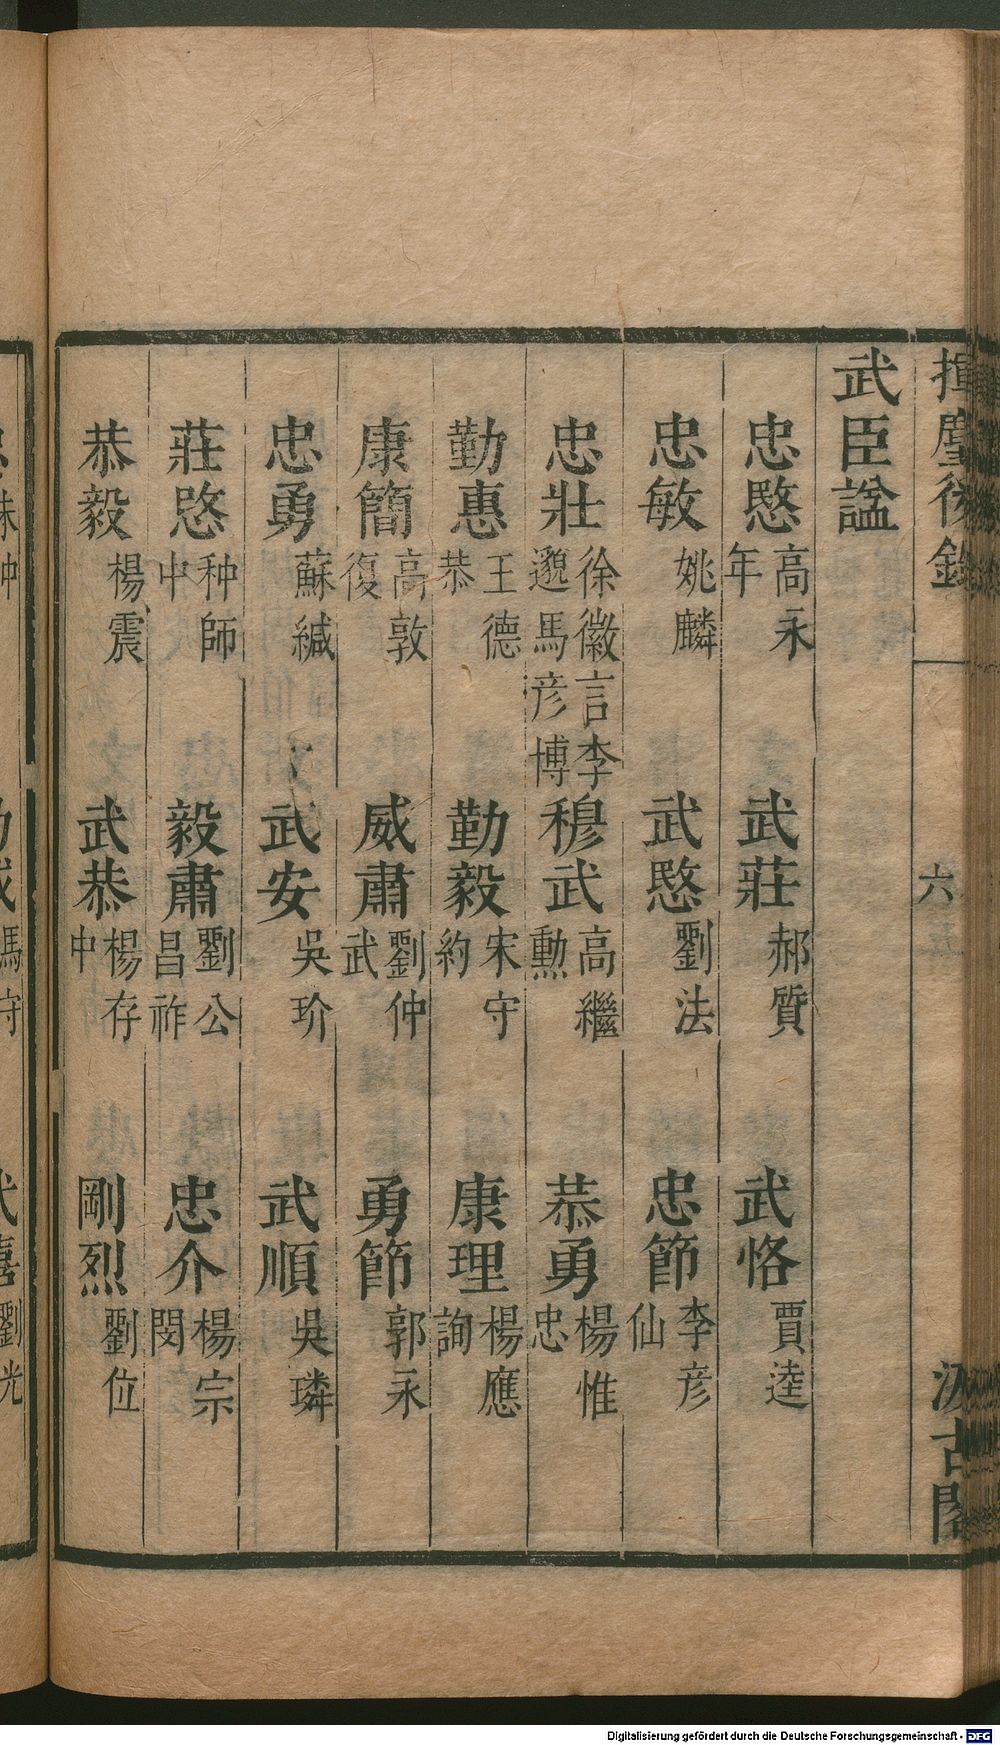 揮麈後錄
六
汲古閣
武臣謚
忠愍 高永年 武莊 郝質 武恪 賈逵
忠敏 姚麟 武愍 劉法 忠節 李彥仙
忠壯 徐徽言李邈馬彥博 穆武 高繼勳 恭勇 楊惟忠
勤惠 王德恭 勤毅 宋守約 康理 楊應詢
康簡 高敦復 威肅 劉仲武 勇節 郭永
忠勇 蘇緘 武安 吳玠 武順 吳璘
莊愍 种師中 毅肅 劉公昌祚 忠介 楊宗閔
恭毅 楊震 武恭 楊存中 剛烈 劉位
Digitalisierung gefördert durch die Deutsche Forschungsgemeinschaft - DFG